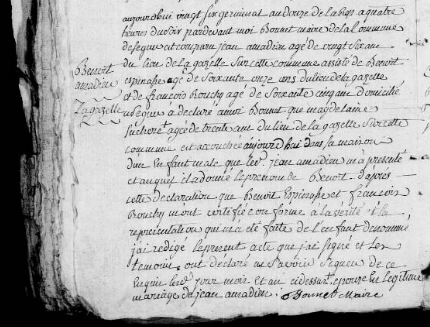 aujourdhui vingt six germinal an douze de la Rep. a quatre
heures du soir pardevant moi Bonnet maire de la commune
de est comparu jean amadieu agé de vingt six ans
du lieu de la gazelle sur cette commune assisté de Benoit
agé de soixante onze ans du lieu de la gazelle
et de francois Rouchy agé de soixante cinq ans domicilié
a déclaré a moi Bonnet que magdelaine
agée de trente ans du lieu de la gazelle sur cette
commune est accouchée aujourdhui dans sa maison
dun enfant male que led. jean amadieu m'a presenté
et auquel il a donné le prenom de Benoit. d'après
cette déclaration que Benoit et francois
Rouchy m'ont certifiée conforme à la vérité et la
représentation qui m'a été faite de l'enfant denommé
j'ai redigé le present acte que j'ai signé et les
temoins ont déclaré ne savoir signer de ce
enquis led. jour mois et an cidessus. épouse en legitime
mariage du jean amadieu. Bonnet Maire
Benoit
amadieu
La gazelle